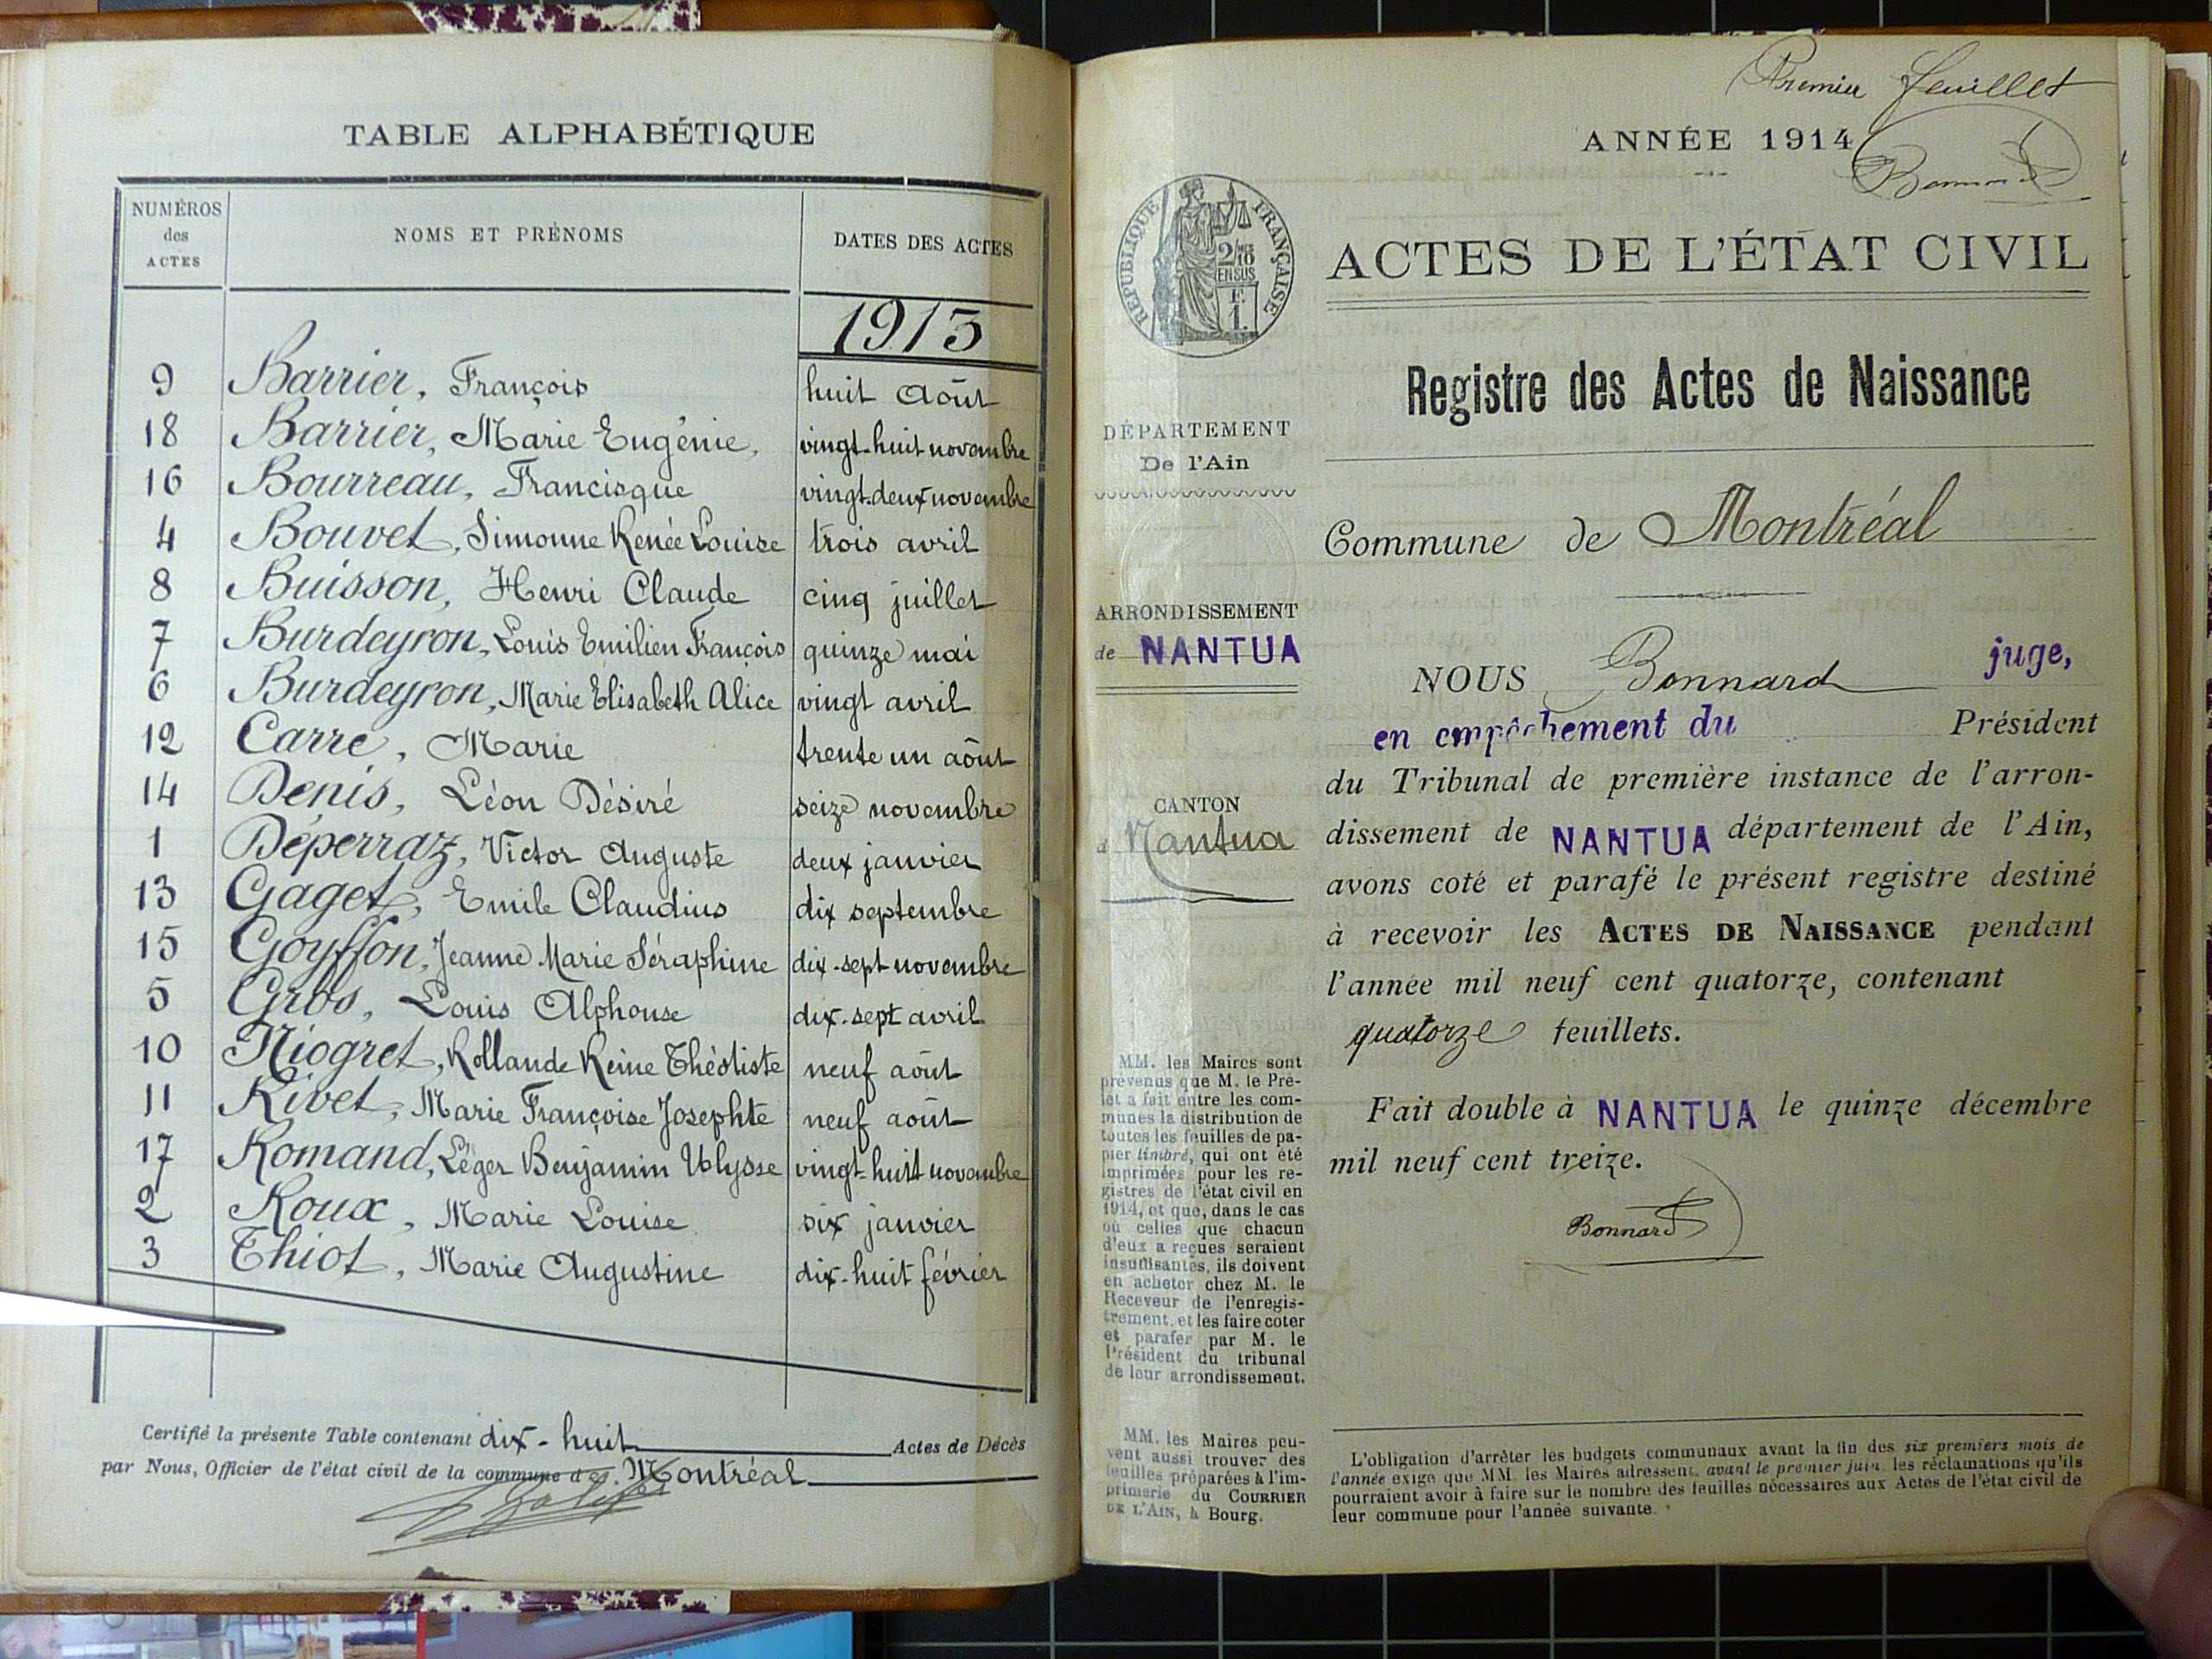 TABLE ALPHABÉTIQUE
NUMÉROS
des
ACTES
NOMS ET PRÉNOMS
DATES DES ACTES
1913
9 Barrier, François huit Août
18 Barrier, Marie Eugénie, vingt-huit novembre
16 Bourreau, Francisque vingt-deux novembre
4 Bouvet, Simonne Renée Louise trois avril
8 Buisson, Henri Claude cinq juillet
7 Burdeyron, Louis Emilien François quinze mai
6 Burdeyron, Marie Elisabeth Alice vingt avril
12 Carre, Marie trente un août
14 Denis, Léon Désiré seize novembre
1 Déperraz, Victor Auguste deux janvier
13 Gaget, Emile Claudius dix septembre
15 Goyffon, Jeanne Marie Séraphine dix-sept novembre
5 Gros, Louis Alphonse dix-sept avril
10 Niogret, Rollande Reine Théotiste neuf août
11 Rivet, Marie Françoise Josephte neuf août
17 Romand, Léger Benjamin Ulysse vingt-huit novembre
2 Roux, Marie Louise six janvier
3 Thiot, Marie Augustine dix-huit février
Certifié la présente Table contenant dix-huit Actes de Décès
par Nous, Officier de l'état civil de la commune de Montréal
Premier feuillet
ANNÉE 1914
Bonnard
RÉPUBLIQUE FRANÇAISE
2/10
EN SUS
F
1
ACTES DE L'ÉTAT CIVIL
Registre des Actes de Naissance
DÉPARTEMENT
De l'Ain
Commune de Montréal
ARRONDISSEMENT
de NANTUA
CANTON
d Nantua
NOUS Bonnard juge,
en empêchement du Président
du Tribunal de première instance de l'arron-
dissement de NANTUA département de l'Ain,
avons coté et parafé le présent registre destiné
à recevoir les ACTES DE NAISSANCE pendant
l'année mil neuf cent quatorze, contenant
quatorze feuillets.
Fait double à NANTUA le quinze décembre
mil neuf cent treize.
Bonnard
MM. les Maires sont
prévenus que M. le Pré-
fet a fait entre les com-
munes la distribution de
toutes les feuilles de pa-
pier timbré, qui ont été
imprimées pour les re-
gistres de l'état civil en
1914, et que, dans le cas
où celles que chacun
d'eux a reçues seraient
insuffisantes, ils doivent
en acheter chez M. le
Receveur de l'enregis-
trement, et les faire coter
et parafer par M. le
Président du tribunal
de leur arrondissement.
MM. les Maires peu-
vent aussi trouver des
feuilles préparées à l'im-
primerie du COURRIER
DE L'AIN, à Bourg.
L'obligation d'arrêter les budgets communaux avant la fin des six premiers mois de
l'année exige que MM. les Maires adressent, avant le premier juin, les réclamations qu'ils
pourraient avoir à faire sur le nombre des feuilles nécessaires aux Actes de l'état civil de
leur commune pour l'année suivante.